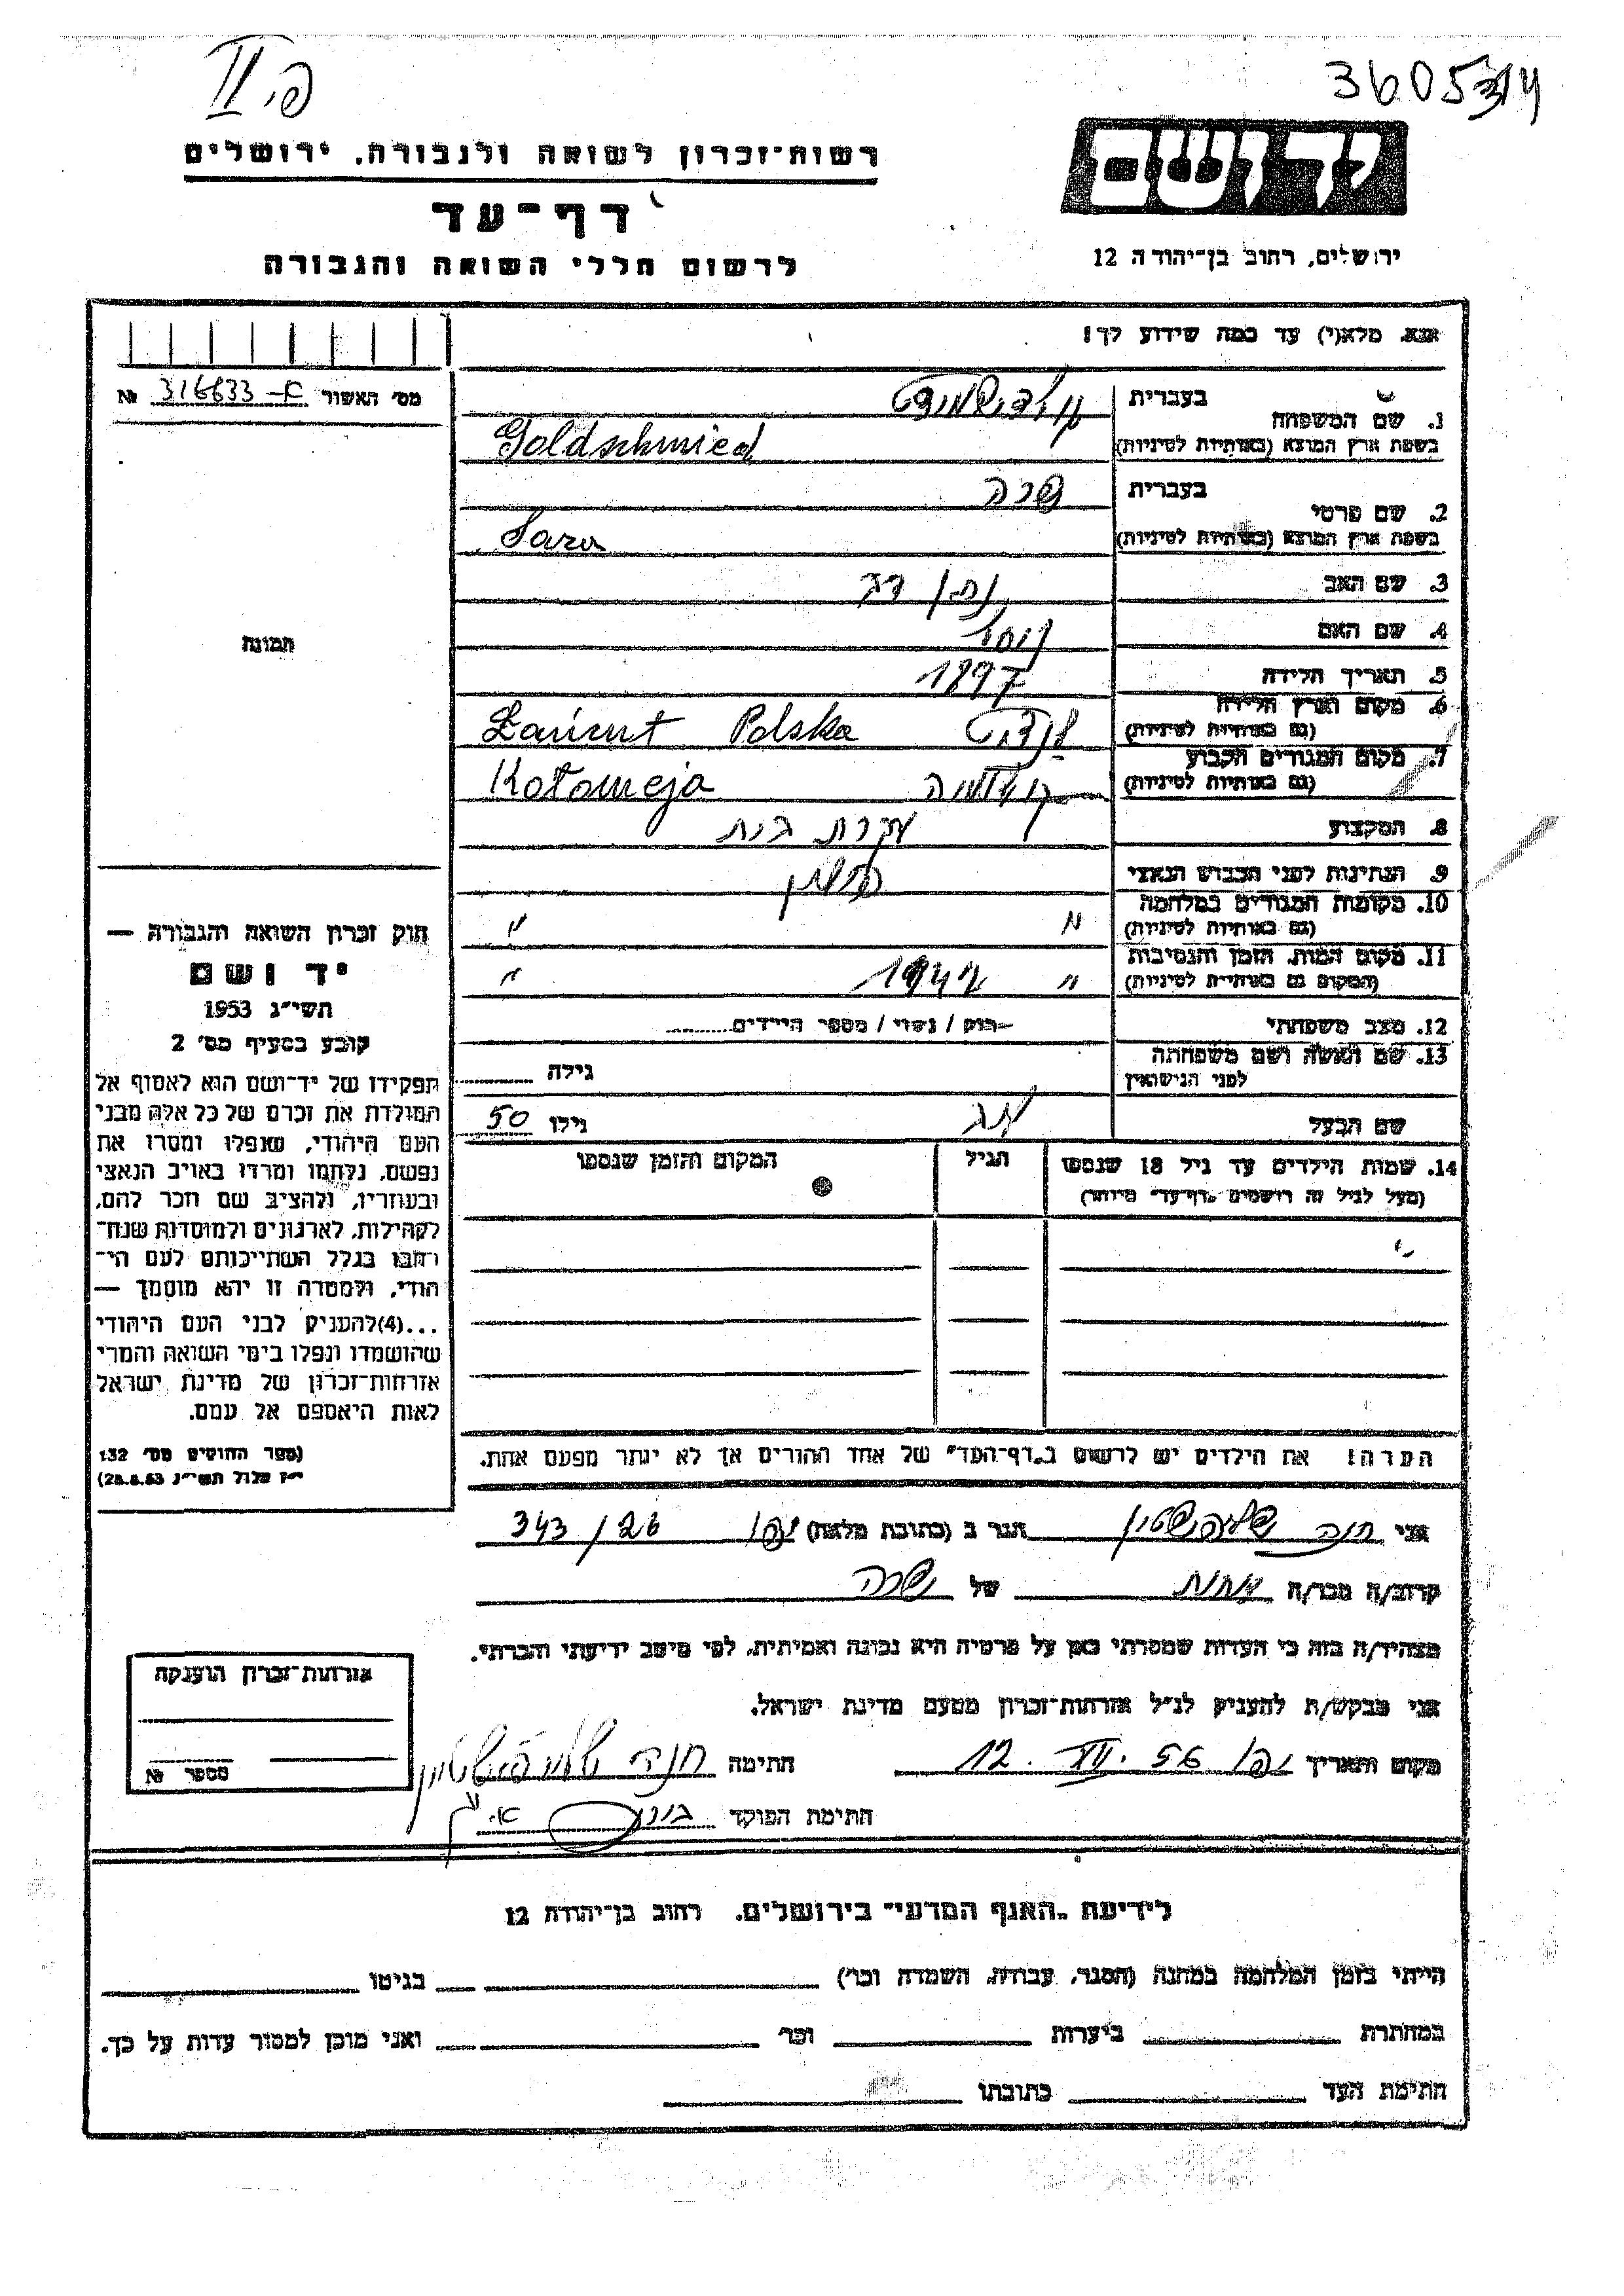 פ.II
360534
רשות-זכרון לשואה ולגבורה, ירושלים
ידושם
דף-עד
לרשום חללי השואה והגבורה
ירושלים, רחוב בן-יהודה 12
אנא, מלא(י) עד כמה שידוע לך!
מס' האשור 316633-א №
1. שם המשפחה
בעברית גולדשמידט
בשפת ארץ המוצא (באותיות לטיניות) Goldschmied
2. שם פרטי
בעברית שרה
בשפת ארץ המוצא (באותיות לטיניות) Sara
3. שם האב
4. שם האם
5. תאריך הלידה 1897
6. מקום וארץ הלידה
(גם באותיות לטיניות) Łańcut Polska
7. מקום המגורים הקבוע
(גם באותיות לטיניות) Kołomeja
8. המקצוע עקרת בית
9. הנתינות לפני הכבוש הנאצי פולנית
10. מקומות המגורים במלחמה
(גם באותיות לטיניות) " "
11. מקום המות, הזמן והנסיבות
(המקום גם באותיות לטיניות) " 1942 "
12. מצב משפחתי רוק / נשוי / מספר הילדים
13. שם האשה ושם משפחתה
לפני הנישואין גילה
שם הבעל גילו 50
14. שמות הילדים עד גיל 18 שנספו הגיל המקום והזמן שנספו
(מעל לגיל זה רושמים "דף-עד" מיוחד)
הערה! את הילדים יש לרשום ב"דף-העד" של אחד ההורים אך לא יותר מפעם אחת.
תמונה
חוק זכרון השואה והגבורה —
יד ושם
תשי"ג 1953
קובע בסעיף מס' 2
תפקידו של יד-ושם הוא לאסוף אל
המולדת את זכרם של כל אלה מבני
העם היהודי, שנפלו ומסרו את
נפשם, נלחמו ומרדו באויב הנאצי
ובעוזריו, ולהציב שם וזכר להם,
לקהילות, לארגונים ולמוסדות שנח-
רבו בגלל השתייכותם לעם הי-
הודי, ולמטרה זו יהא מוסמך —
...(4) להעניק לבני העם היהודי
שהושמדו ונפלו בימי השואה והמרי
אזרחות-זכרון של מדינת ישראל
לאות היאספם אל עמם.
(ספר החוקים מס' 132
י"ז אלול תשי"ג 28.8.53)
אני חנה הגר ב (כתובת מלאה) יפו 26/343
קרוב/ה מכר/ה אחות של שרה
מצהיר/ה בזה כי העדות שמסרתי כאן על פרטיה היא נכונה ואמיתית, לפי מיטב ידיעתי והכרתי.
אני מבקש/ת להעניק לנ"ל אזרחות-זכרון מטעם מדינת ישראל.
מקום ותאריך יפו 12. VII. 56 חתימה חנה
חתימת הפוקד
אזרחות-זכרון הוענקה
מספר №
לידיעת "האגף המדעי" בירושלים, רחוב בן-יהודה 12
הייתי בזמן המלחמה במחנה (הסגר, עבודה, השמדה וכו') בגיטו
במחתרת ביערות וכו' ואני מוכן למסור עדות על כך.
חתימת העד כתובתו